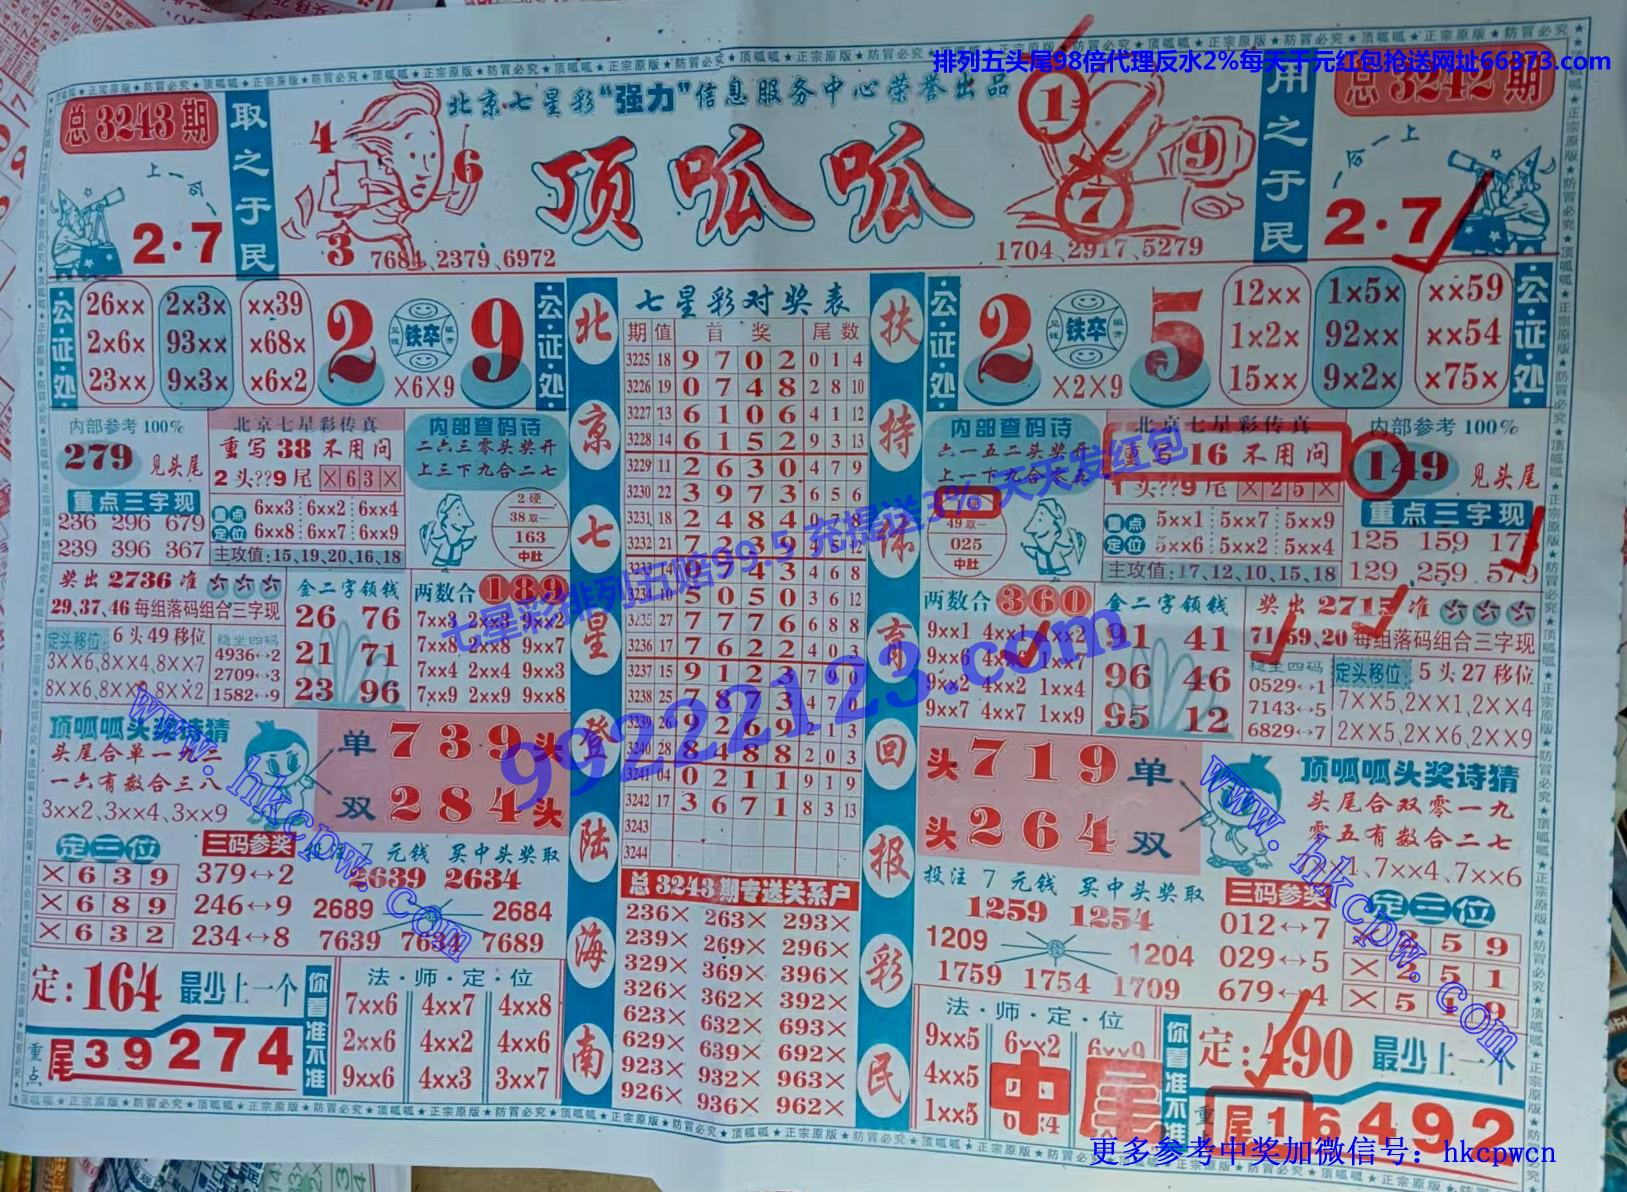 排列五头尾98倍代理反水2%每天千元红包抢送网址66373.com
北京七星彩"强力"信息服务中心荣誉出品
顶呱呱
总3243期
取之于民
2·7
4
6
3
7684、2379、6972
1
9
7
1704、2917、5279
用之于民
总3242期
2·7
公证处
26×× 2×3× ××39
2×6× 93×× ×68×
23×× 9×3× ×6×2
2 铁卒 9
×6×9
公证处
内部参考100%
279 见头尾
重点三字现
236 296 679
239 396 367
北京七星彩传真
重写38不用问
2头??9尾 ×63×
重点定位
6××3 6××2 6××4
6××8 6××7 6××9
主攻值:15、19、20、16、18
内部查码诗
二六三零头奖开
上三下九合二七
2硬
38取一
163
中肚
奖出2736准
29、37、46每组落码组合三字现
定头移位: 6头49移位
3××6、8××4、8××7
8××6、8××8、8××2
稳坐四码
4936↔2
2709↔3
1582↔9
金二字领钱
26 76
21 71
23 96
两数合189
7××3 2××3 9××2
7××8 2××8 9××7
7××4 2××4 9××3
7××9 2××9 9××8
顶呱呱头奖诗猜
头尾合单一九二
一六有数合三八
3××2、3××4、3××9
单739头
双284头
定三位
×639
×689
×632
三码参奖
379↔2
246↔9
234↔8
投注7元钱 买中头奖取
2639 2634
2689 2684
7639 7634 7689
定:164 最少上一个
重点
尾39274
你看准不准
法·师·定·位
7××6 4××7 4××8
2××6 4××2 4××6
9××6 4××3 3××7
北京七星彩登陆海南
七星彩对奖表
期 值 首奖 尾数
3225 18 9702 0 1 4
3226 19 0748 2 8 10
3227 13 6106 4 1 12
3228 14 6152 9 3 13
3229 11 2630 4 7 9
3230 22 3973 6 5 6
3231 18 2484
3232 21 7239
3236 17 7622 4 0 3
3237 15 9123 7 9 0
3238 25 7873 4 7 0
3239 26 9269
3240 28 8488 2 0 3
3241 04 0211 9 1 9
3242 17 3671 8 3 13
3243
3244
总3243期专送关系户
236× 263× 293×
239× 269× 296×
329× 369× 396×
326× 362× 392×
623× 632× 693×
629× 639× 692×
923× 932× 963×
926× 936× 962×
扶持体育回报彩民
公证处
2 铁卒 5
×2×9
12×× 1×5× ××59
1×2× 92×× ××54
15×× 9×2× ×75×
公证处
内部查码诗
六一五二头奖开
上一下九合零五
49取一
025
中肚
北京七星彩传真
重写16不用问
1头??9尾 ×25×
重点定位
5××1 5××7 5××9
5××6 5××2 5××4
主攻值:17、12、10、15、18
内部参考100%
149 见头尾
重点三字现
125 159
129 259 579
两数合360
9××1 4××1
9××6 1××7
9××2 4××2 1××4
9××7 4××7 1××9
金二字领钱
91 41
96 46
95 12
奖出2715准
71、59、20每组落码组合三字现
稳坐四码
0529↔1
7143↔5
6829↔7
定头移位: 5头27移位
7××5、2××1、2××4
2××5、2××6、2××9
头719单
头264双
顶呱呱头奖诗猜
头尾合双零一九
零五有数合二七
7××4、7××6
投注7元钱 买中头奖取
1259 1254
1209 1204
1759 1754 1709
三码参奖
012↔7
029↔5
679↔4
定三位
法·师·定·位
9××5 6××2 6××9
4××5
1××5
中尾
你看准不准
定:490 最少上一个
尾16492
七星彩排列五赔99.5 充提送3% 天天发红包
99222123.com
www.hkcpw.com
www.hkcpw.com
更多参考中奖加微信号：hkcpwcn